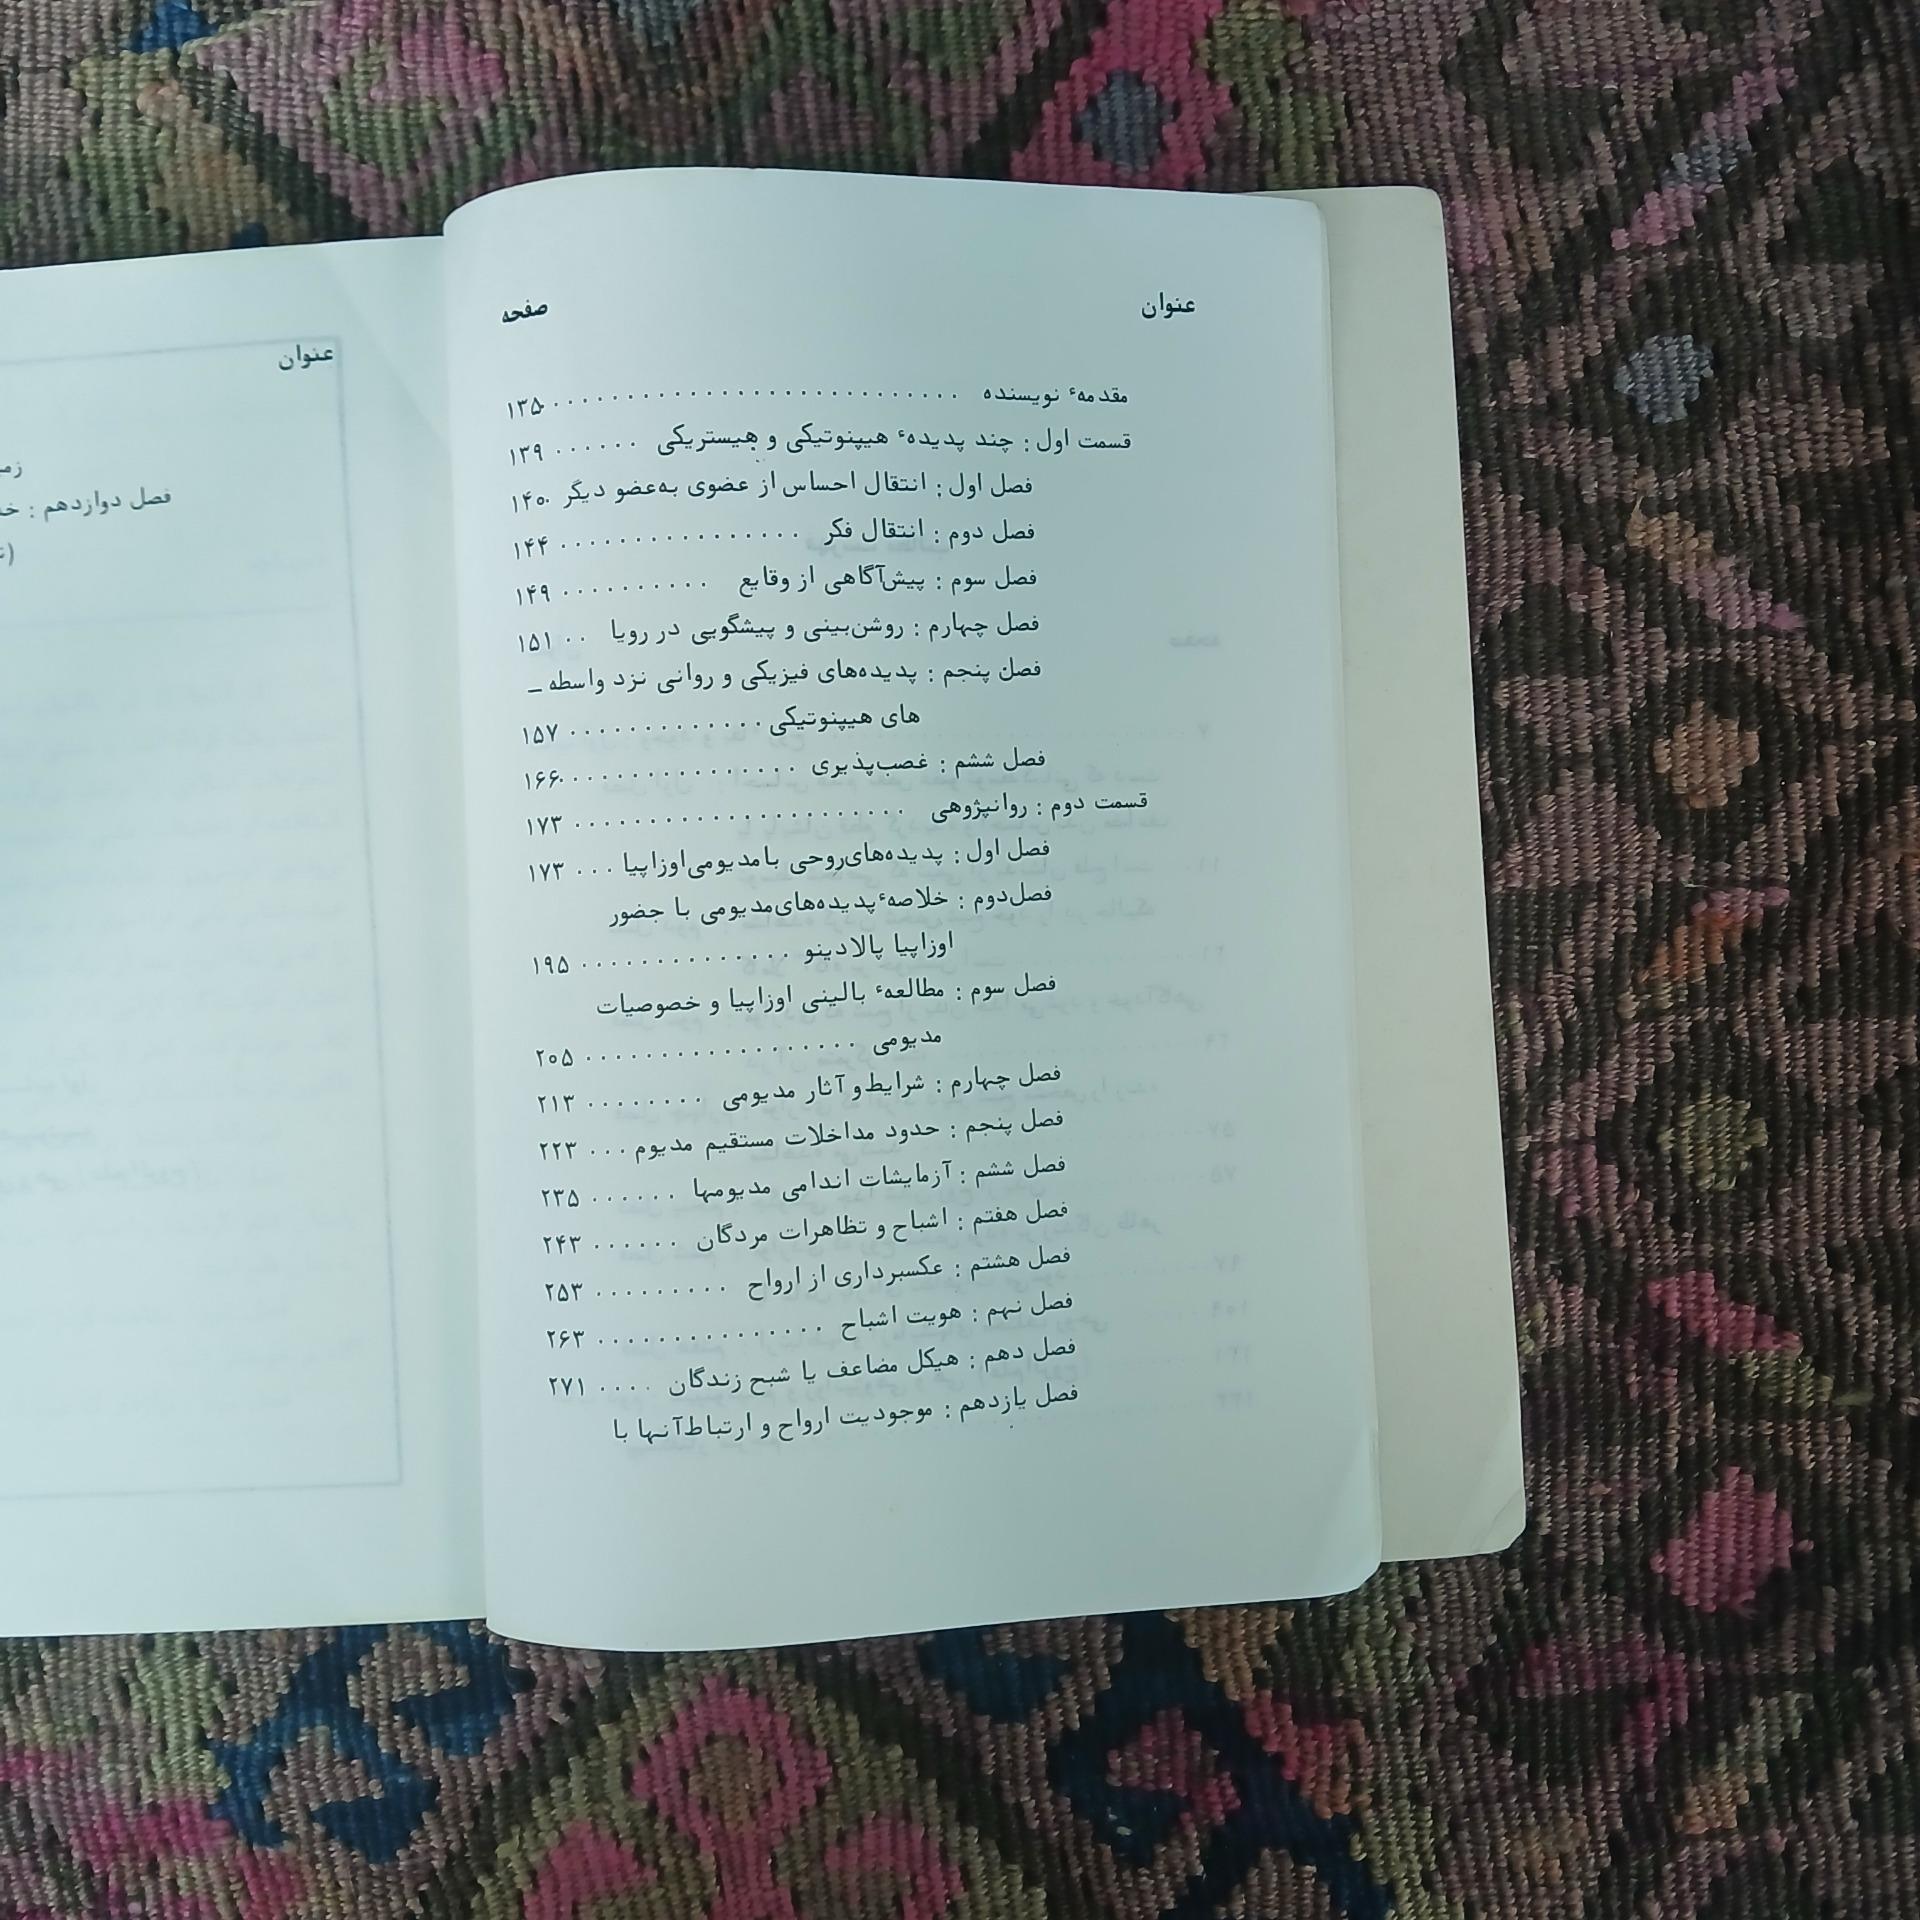 عنوان صفحه
مقدمهٔ نویسنده .......................... ۱۳۵
قسمت اول : چند پدیدهٔ هیپنوتیکی و هیستریکی ...... ۱۳۹
فصل اول : انتقال احساس از عضوی به‌عضو دیگر ۱۴۰
فصل دوم : انتقال فکر ................ ۱۴۴
فصل سوم : پیش‌آگاهی از وقایع .......... ۱۴۹
فصل چهارم : روشن‌بینی و پیشگویی در رویا .. ۱۵۱
فصل پنجم : پدیده‌های فیزیکی و روانی نزد واسطه ـ
های هیپنوتیکی ............ ۱۵۷
فصل ششم : غصب‌پذیری ................ ۱۶۶
قسمت دوم : روانپژوهی ...................... ۱۷۳
فصل اول : پدیده‌های‌روحی با‌مدیومی‌اوزاپیا ... ۱۷۳
فصل‌دوم : خلاصهٔ پدیده‌های‌مدیومی با حضور
اوزاپیا پالادینو .............. ۱۹۵
فصل سوم : مطالعهٔ بالینی اوزاپیا و خصوصیات
مدیومی .................. ۲۰۵
فصل چهارم : شرایط و آثار مدیومی ........ ۲۱۳
فصل پنجم : حدود مداخلات مستقیم مدیوم ... ۲۲۳
فصل ششم : آزمایشات اندامی مدیومها ...... ۲۳۵
فصل هفتم : اشباح و تظاهرات مردگان ...... ۲۴۳
فصل هشتم : عکسبرداری از ارواح ......... ۲۵۳
فصل نهم : هویت اشباح ............... ۲۶۳
فصل دهم : هیکل مضاعف یا شبح زندگان .... ۲۷۱
فصل یازدهم : موجودیت ارواح و ارتباط‌آنها با
عنوان
فصل دوازدهم :